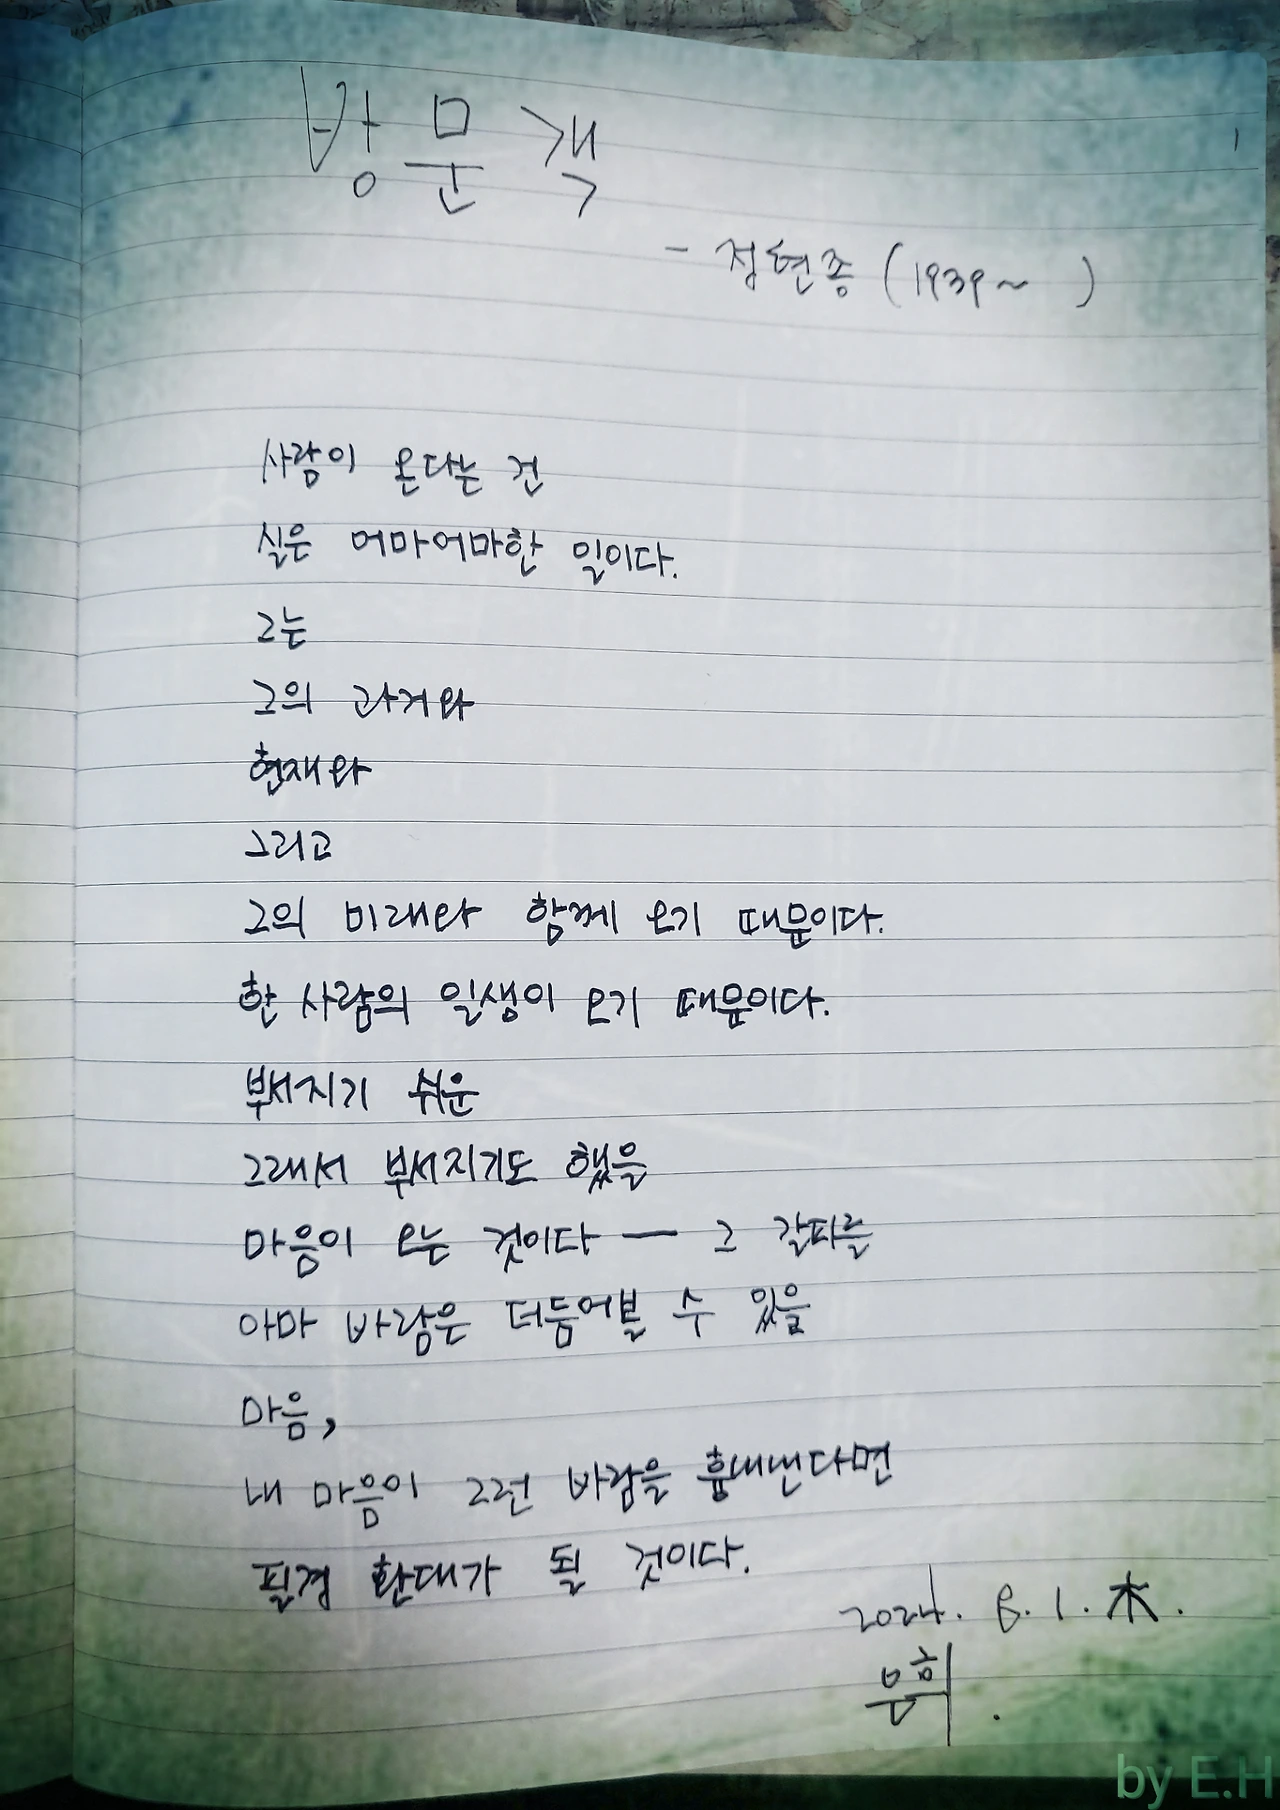 방문객
- 정현종 (1939~ )
사람이 온다는 건
실은 어마어마한 일이다.
그는
그의 과거와
현재와
그리고
그의 미래와 함께 오기 때문이다.
한 사람의 일생이 오기 때문이다.
부서지기 쉬운
그래서 부서지기도 했을
마음이 오는 것이다 — 그 갈피를
아마 바람은 더듬어볼 수 있을
마음,
내 마음이 그런 바람을 흉내낸다면
필경 환대가 될 것이다.
2024. 8. 1. 木.
은희.
by E.H